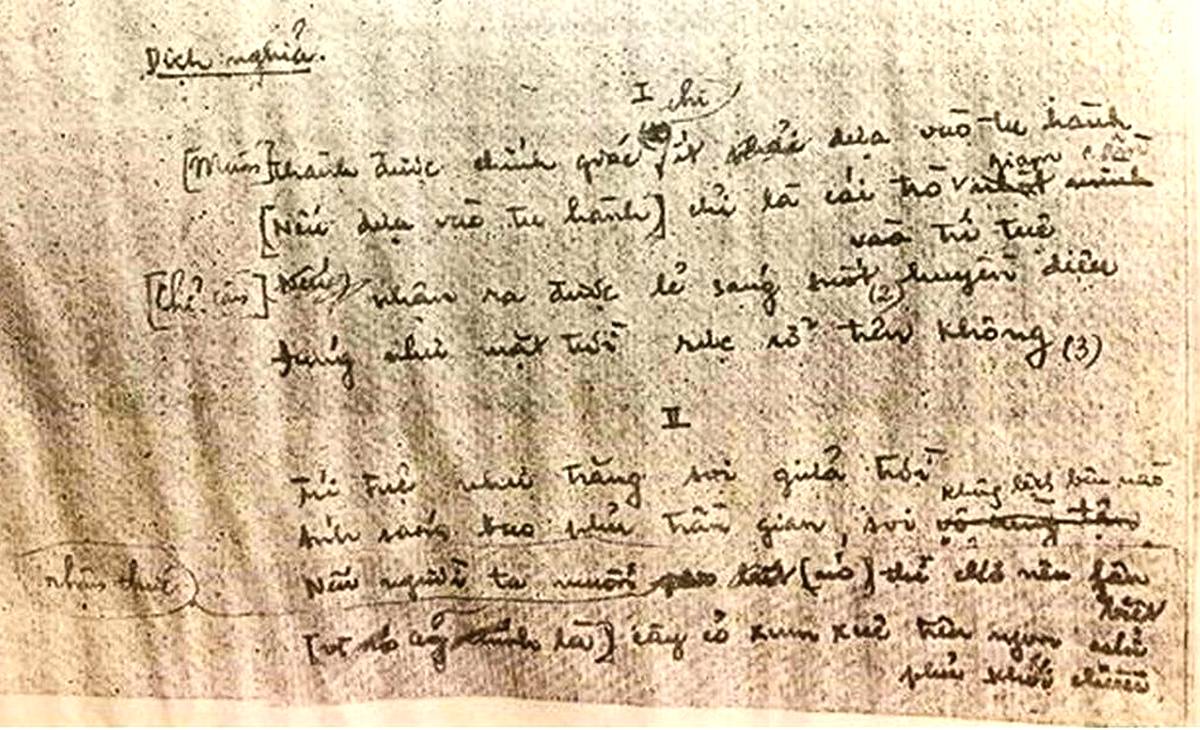 Dịch nghĩa.
I
chỉ
[Muốn] thành được chính giác ít phải dựa vào tu hành
giam cầm
[Nếu dựa vào tu hành] chỉ là cái trò nhốt mình
vào trí tuệ
[chỉ cần] Nếu nhận ra được lẽ sáng suốt (2) huyền diệu
Đúng như mặt trời rực rỡ trên không (3)
II
Trí tuệ như trăng soi giữa trời
không biết bên nào
Ánh sáng bao phủ trần gian, soi vô cùng tận
nhận thức
Nếu người ta muốn [nó] thì chớ nên phân
biệt
[vì nó cũng là] cây cỏ xum xuê trên ngọn núi
phủ khói chiều